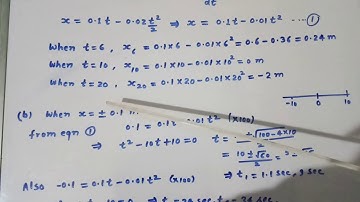 dt
x = 0.1t - 0.02 t²/2 ⇒ x = 0.1t - 0.01t² ---- ①
When t = 6, x₆ = 0.1×6 - 0.01×6² = 0.6 - 0.36 = 0.24 m
When t = 10, x₁₀ = 0.1×10 - 0.01×10² = 0 m
When t = 20, x₂₀ = 0.1×20 - 0.01×20² = -2 m
-10 0 10
(b) When x = ± 0.1
from eqn ① 0.1 = 0.1t 0.01t² (×100)
⇒ t² - 10t + 10 = 0 t = √100 - 4×10 / 2
= 10 ± √60 / 2 = 5 ±
⇒ t₁ = 1.1 sec, 9 sec
Also -0.1 = 0.1t - 0.01t² (×100)